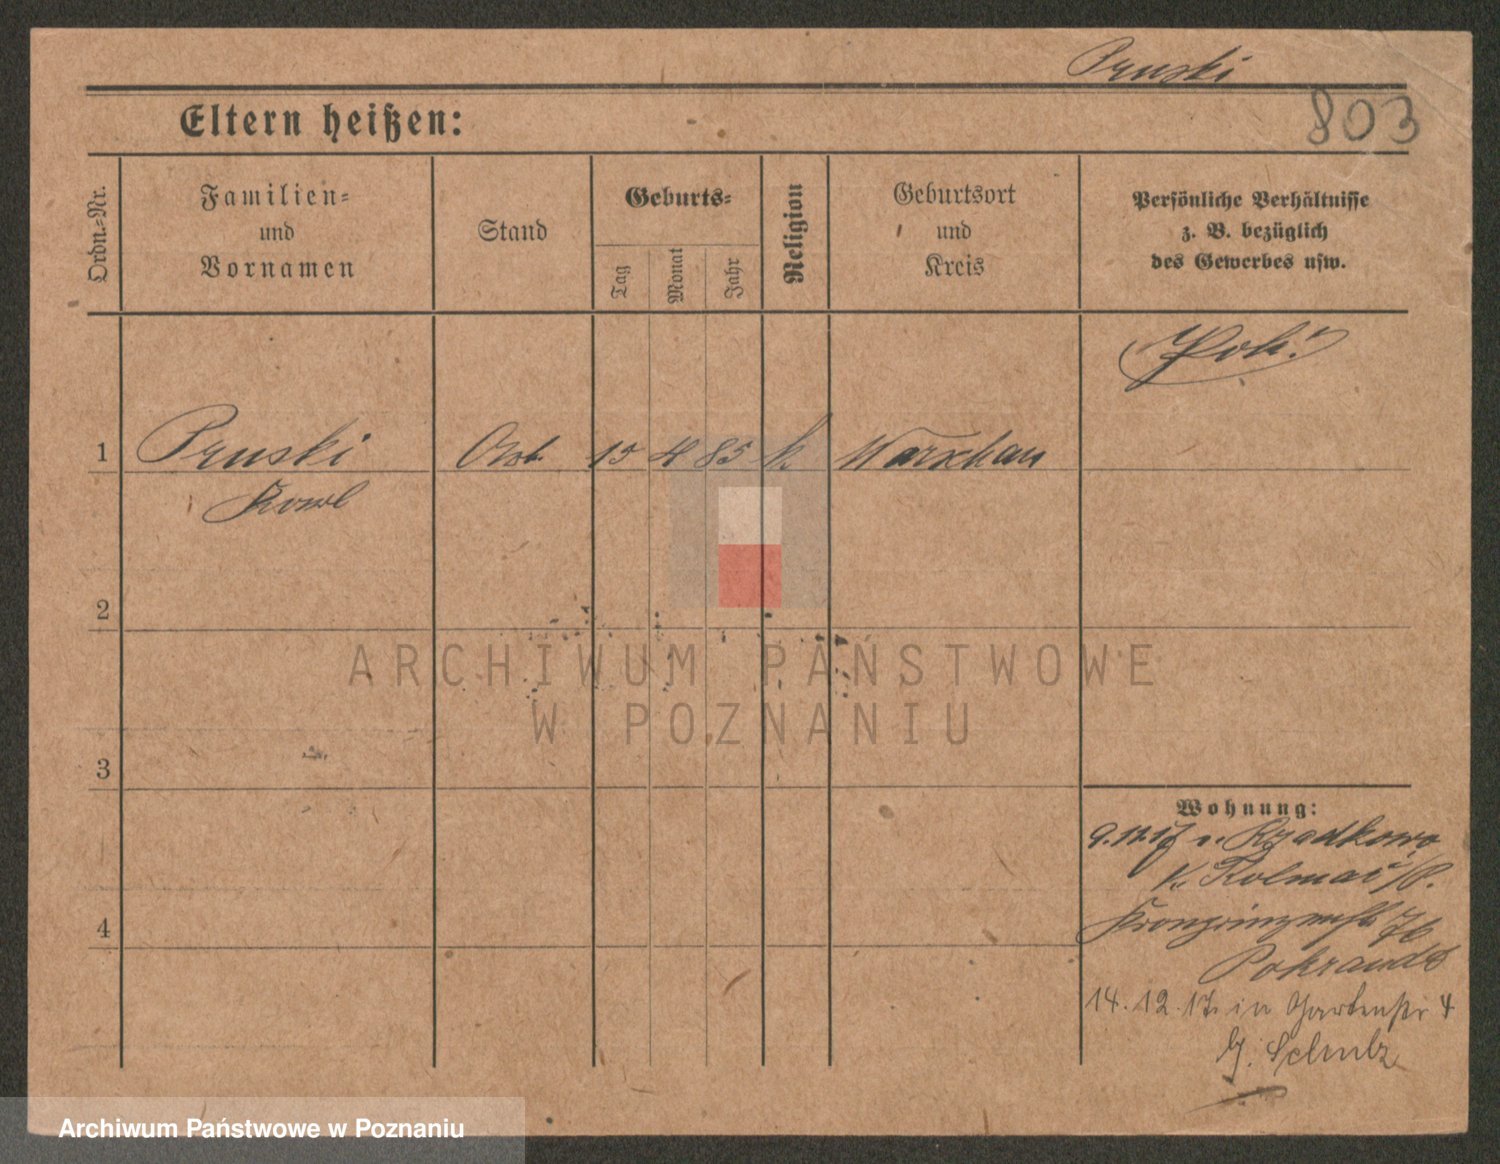 Pruski
803
Eltern heißen:
Ordn.=Nr.
Familien=
und
Vornamen
Stand
Geburts=
Tag
Monat
Jahr
Religion
Geburtsort
und
Kreis
Persönliche Verhältnisse
z. B. bezüglich
des Gewerbes usw.
1 Pruski 15 4 85 k Warschau
2
3
4
Wohnung:
9.12.17 v. Rzadkowo
K. Kolmar i/P.
Kronprinzenstr 76
Pokrandt
14. 12. 17. in Gartenstr 4
b. Schulz
ARCHIWUM PAŃSTWOWE
W POZNANIU
Archiwum Państwowe w Poznaniu